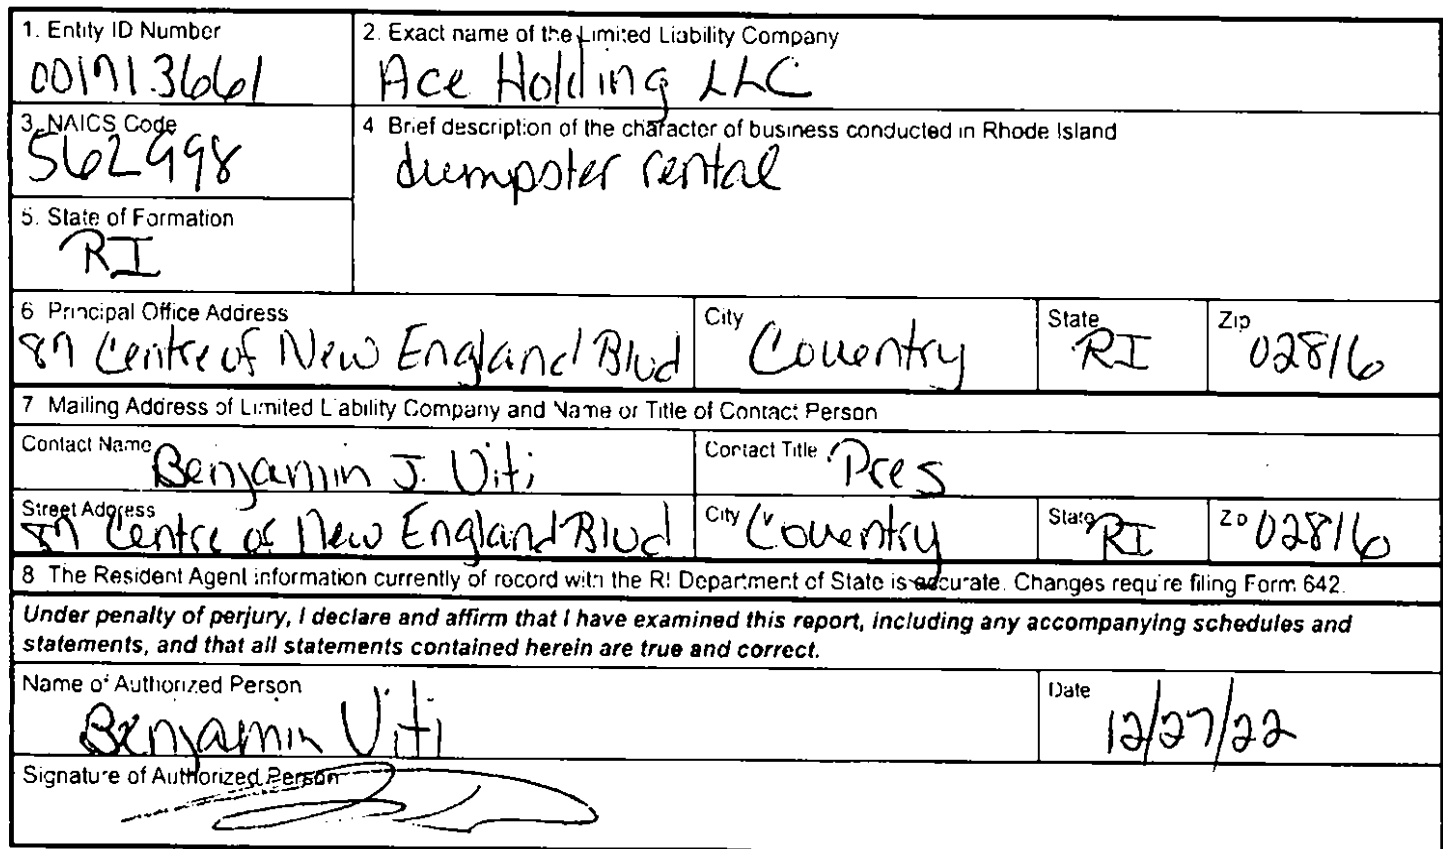 1. Entity ID Number
001713661
2. Exact name of the Limited Liability Company
Ace Holding LLC
3. NAICS Code
562998
4 Brief description of the character of business conducted in Rhode Island
dumpster rental
5. State of Formation
RI
6 Principal Office Address
87 Centre of New England Blvd
City
Coventry
State
RI
Zip
02816
7 Mailing Address of Limited Liability Company and Name or Title of Contact Person
Contact Name
Benjamin J. Viti
Contact Title
Pres
Street Address
87 Centre of New England Blvd
City
Coventry
State
RI
Zip
02816
8 The Resident Agent information currently of record with the RI Department of State is accurate. Changes require filing Form 642.
Under penalty of perjury, I declare and affirm that I have examined this report, including any accompanying schedules and
statements, and that all statements contained herein are true and correct.
Name of Authorized Person
Benjamin Viti
Date
12/27/22
Signature of Authorized Person